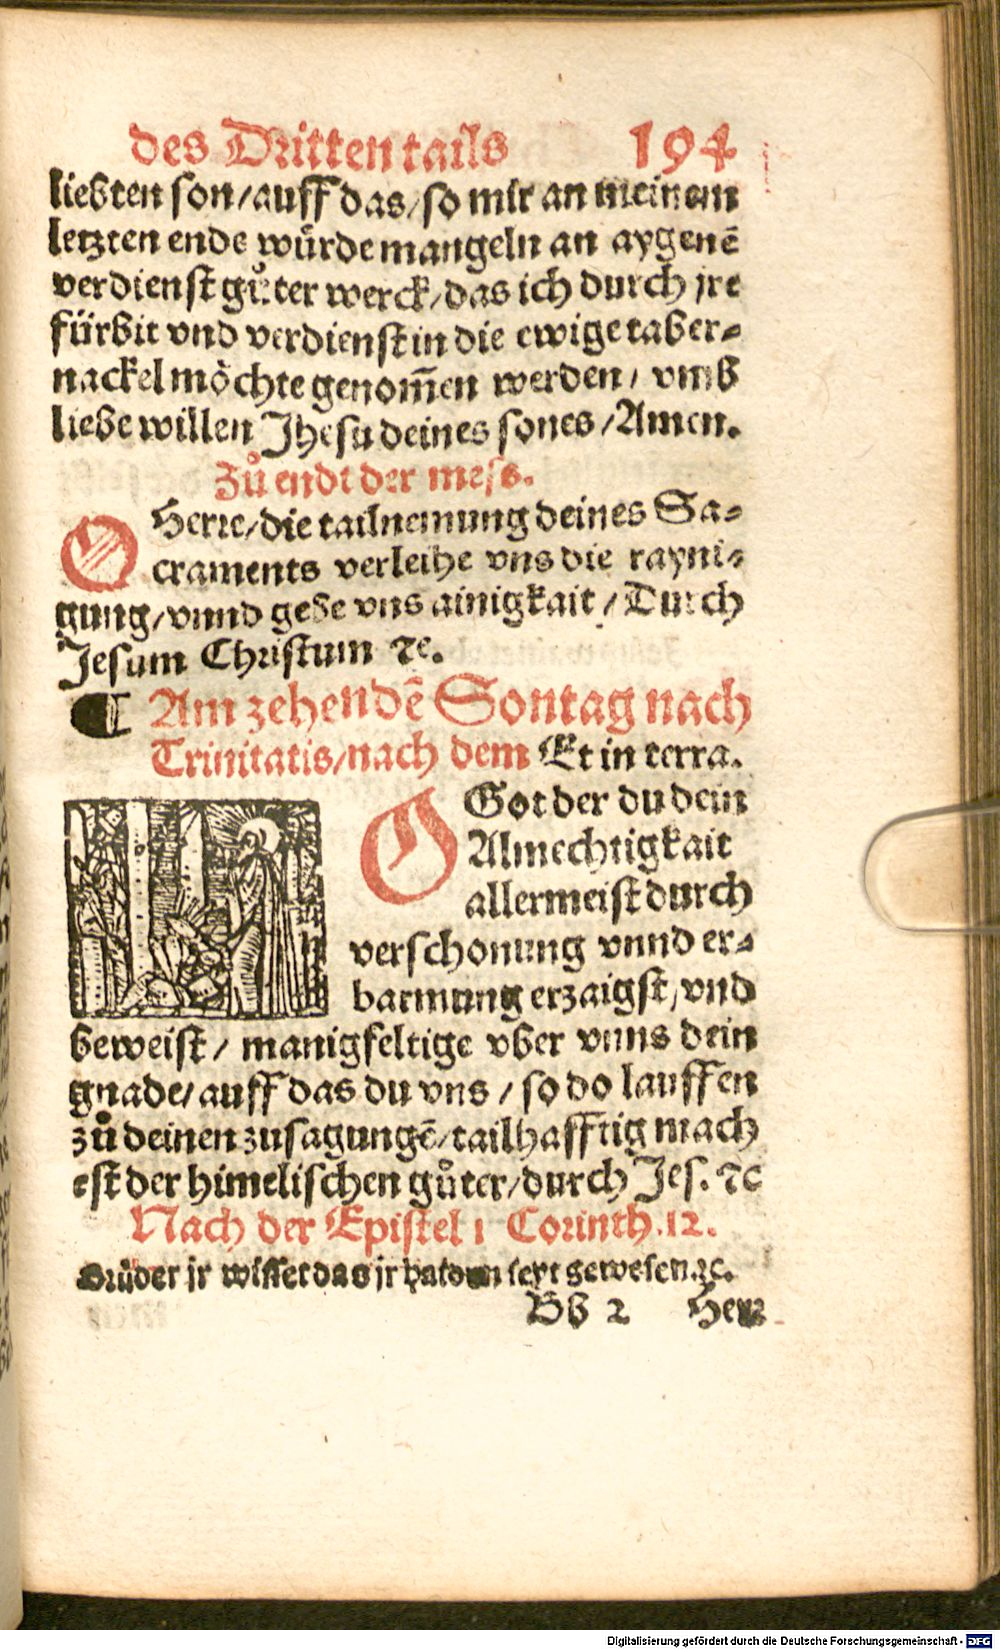 des Dritten tails 194
liebsten son/auff das/so mir an meinem
letzten ende würde mangeln an aygenē
verdienst gůter werck/das ich durch jre
fürbit vnd verdienst in die ewige taber⸗
nackel möchte genom̄en werden/ vmb
liebe willen Jhesu deines sones/Amen.
Zů endt der mess.
O Herre/die tailnemung deines Sa⸗
craments verleihe vns die rayni⸗
gung/vnnd gebe vns ainigkait/Durch
Jesum Christum ⁊c.
¶ Am zehendē Sontag nach
Trinitatis/nach dem Et in terra.
O Got der du dein
Almechtigkait
allermeist durch
verschonung vnnd er⸗
barmung erzaigst/vnd
beweist/ manigfeltige vber vnns dein
gnade/auff das du vns/so do lauffen
zů deinen zusagungē/tailhafftig mach
est der himelischen gůter/durch Jes. ⁊c
Nach der Epistel 1 Corinth.12.
Brůder jr wisset das jr haiden seyt gewesen.⁊c.
Bb 2 Herr
Digitalisierung gefördert durch die Deutsche Forschungsgemeinschaft - DFG